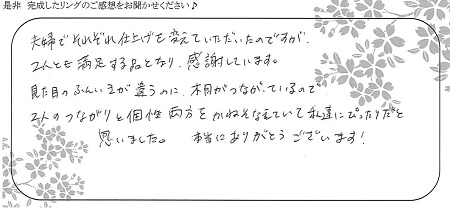 是非 完成したリングのご感想をお聞かせください♪
夫婦でそれぞれ仕上げを変えていただいたのですが、
2人とも満足する品となり、感謝しています。
見た目のふんいきが違うのに、木目がつながっているので
2人のつながりと個性両方をかねそなえていて私達にぴったりだと
思いました。 本当にありがとうございます!